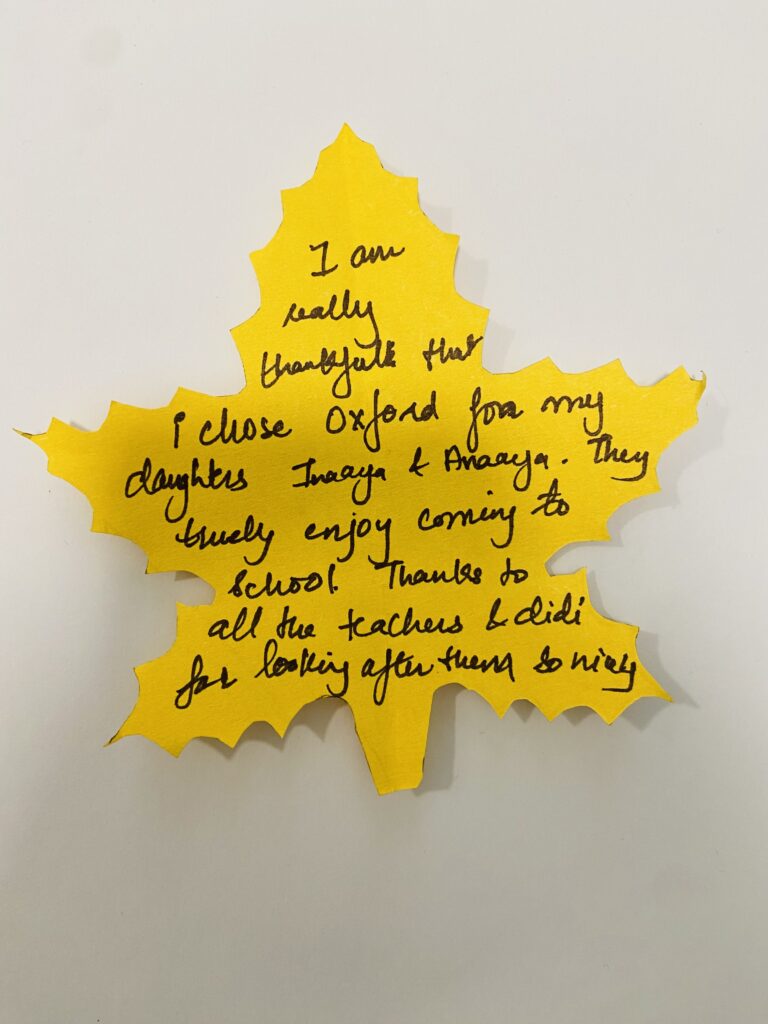 I am
really
thankfull that
i chose Oxford for my
daughters Inaaya & Anaaya. They
truely enjoy coming to
school. Thanks to
all the teachers & didi
for looking after them so nicely